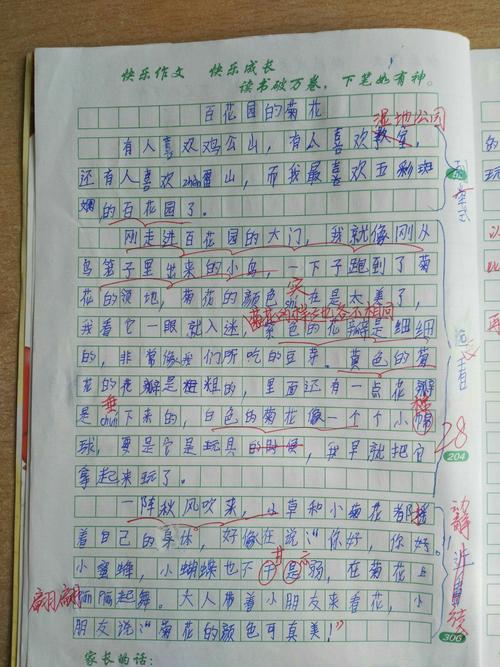 快乐作文 快乐成长
读书破万卷，下笔如有神。
百花园的菊花
湿地公园
有人喜欢鸡公山，有人喜欢
还有人喜欢山，而我最喜欢五彩斑
斓的百花园了。
刚走进百花园的大门，我就像刚从
鸟笼子里出来的小鸟，一下子跑到了菊
花的领地，菊花的颜色实在是太美了，
菊花的样子也各不相同
我看它一眼就入迷，紫色的花瓣是细细
的，非常像我们所吃的豆芽。黄色的菊
花的花瓣是粗粗的，里面还有一点花瓣
是chuí下来的，白色的菊花像一个个小
垂
球，要是它是玩具的时候，我早就把它
拿起来玩了。
28
204
一阵秋风吹来，小草和小菊花都
着自己的身体，好像在说“你好，你好。”
小蜜蜂，小蝴蝶也不干是弱，在菊花上
甘 示
翩翩起舞。大人带着小朋友来看花，小
朋友说“菊花的颜色可真美！”
306
家长的话：